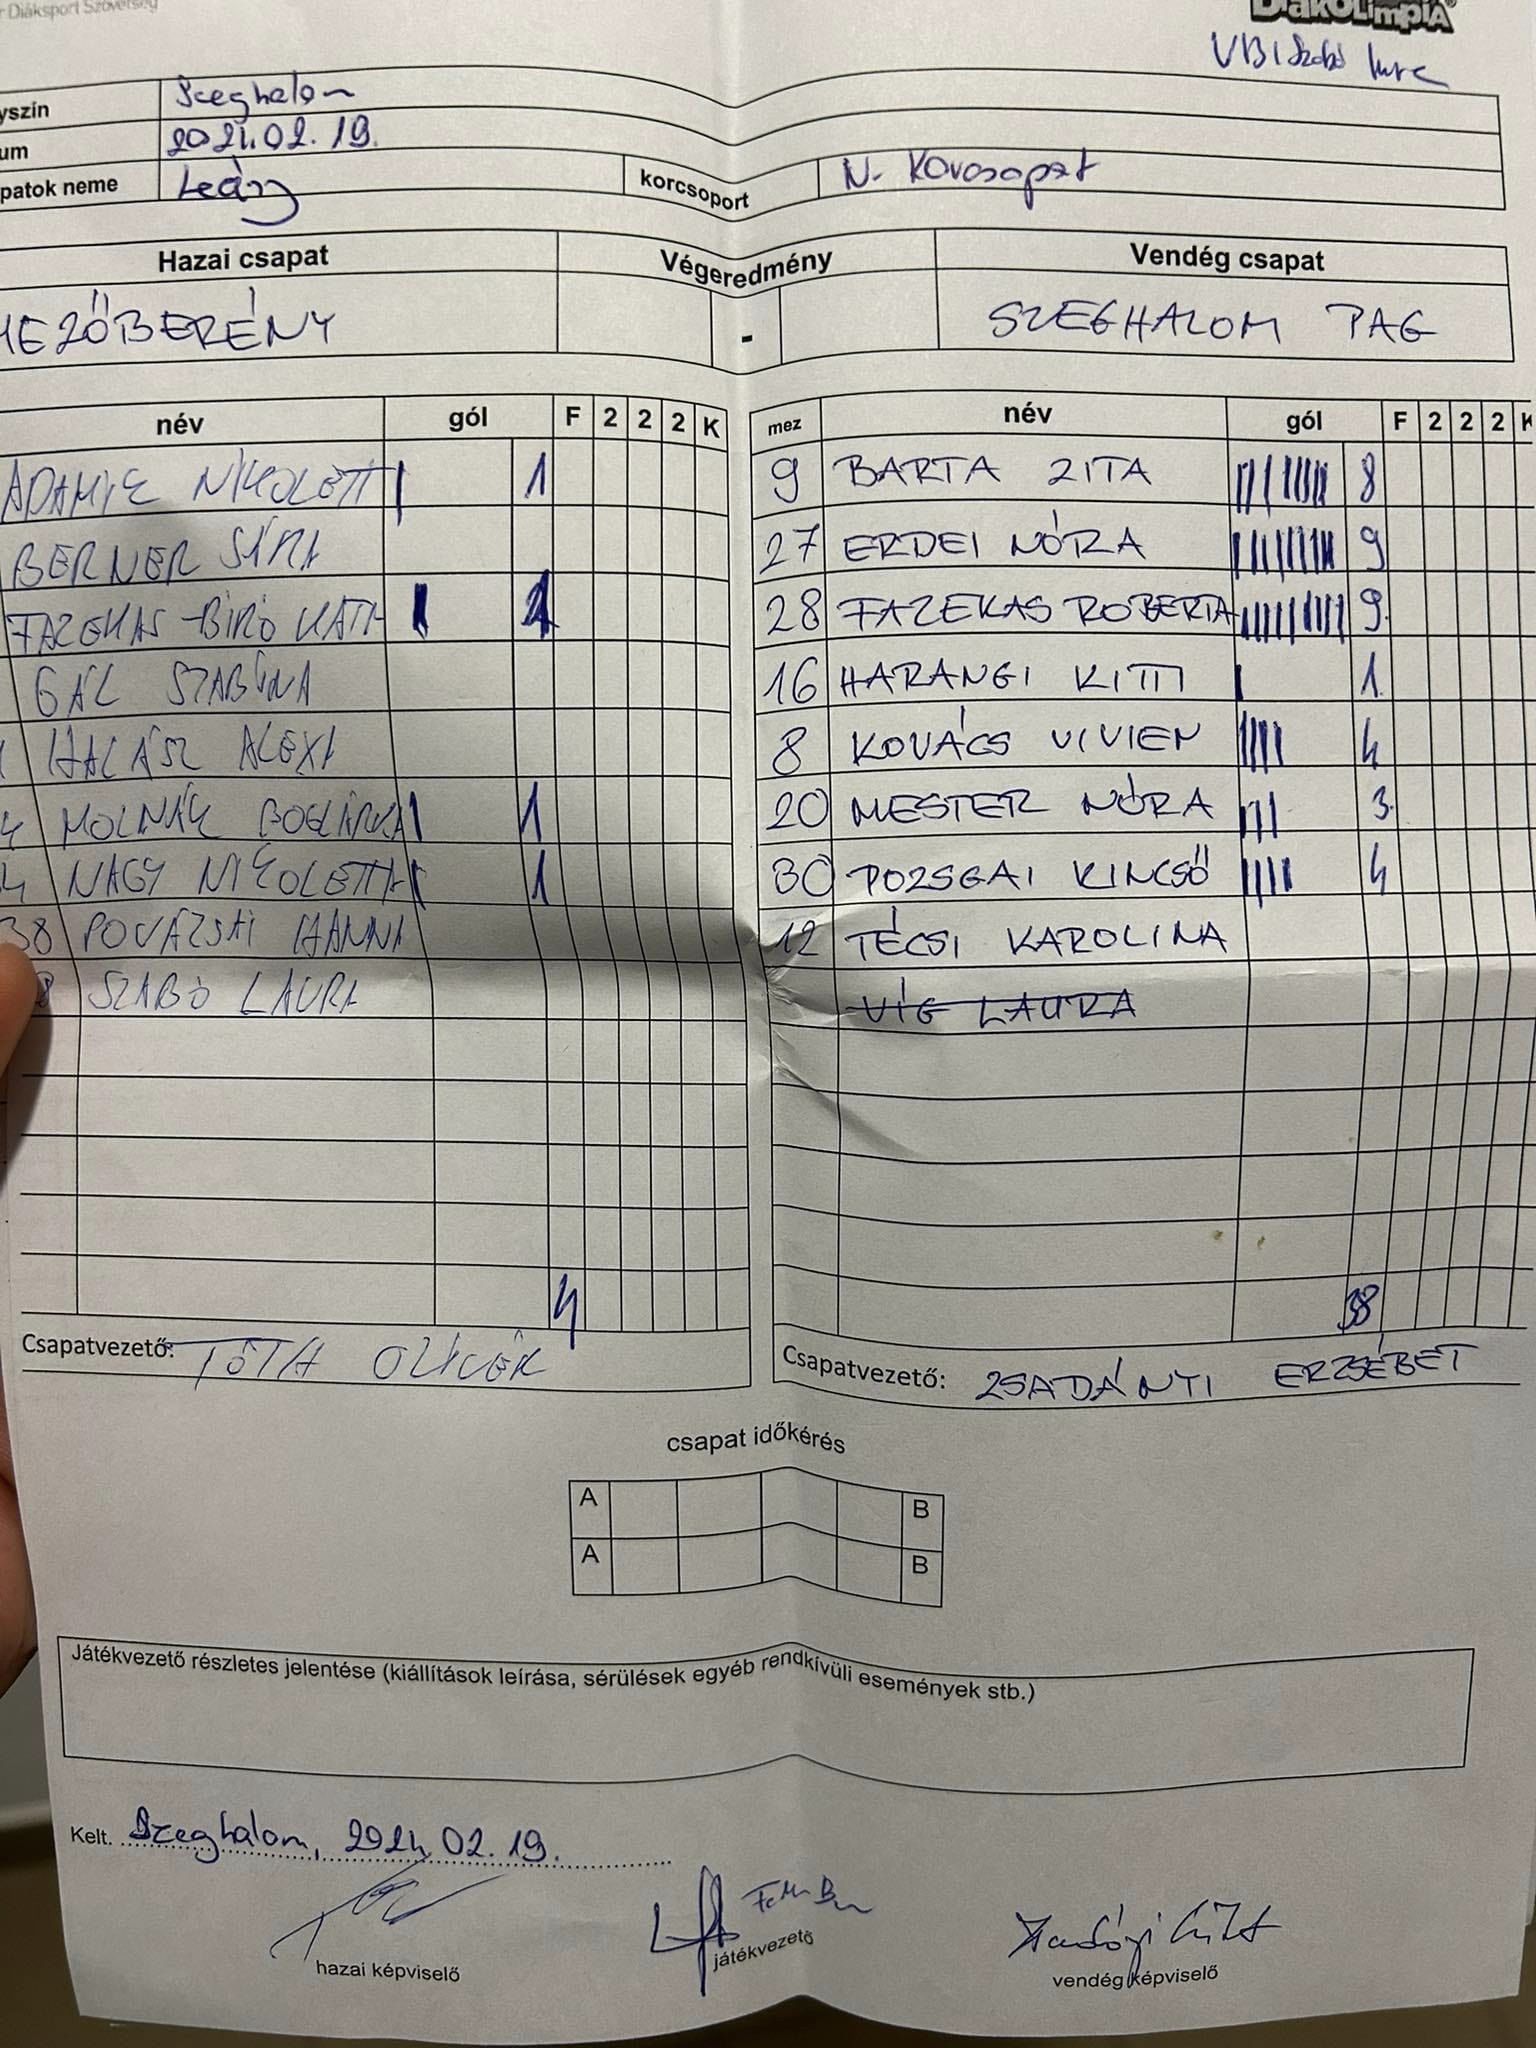 Diáksport Szövetség
DiákOLimpiA
VB1 Szabó Imre
yszín Szeghalom
um 2024.02.19.
patok neme Leány korcsoport N. Korcsoport
Hazai csapat Végeredmény Vendég csapat
MEZŐBERÉNY - SZEGHALOM PAG
név gól F 2 2 2 K mez név gól F 2 2 2 K
NIKOLETT 1 9 BARTA ZITA 8
BERNER SÁRA 27 ERDEI NÓRA 9
FAZEKAS-BIRÓ KATA 28 FAZEKAS ROBERTA 9.
GÁL SZABINA 16 HARANGI KITTI 1.
HALÁSZ ALEXA 8 KOVÁCS VIVIEN 4
4 MOLNÁR BOGLÁRKA 1 20 MESTER NÓRA 3.
4 NAGY NIKOLETTA 1 30 POZSGAI KINCSŐ 4
38 POVÁZSAI HANNA 12 TÉCSI KAROLINA
8 SZABÓ LAURA VÍG LAURA
4 38
Csapatvezető: TÓTH OLIVÉR Csapatvezető: ZSADÁNYI ERZSÉBET
csapat időkérés
A B
A B
Játékvezető részletes jelentése (kiállítások leírása, sérülések egyéb rendkívüli események stb.)
Kelt. Szeghalom, 2024. 02. 19.
hazai képviselő játékvezető vendég képviselő